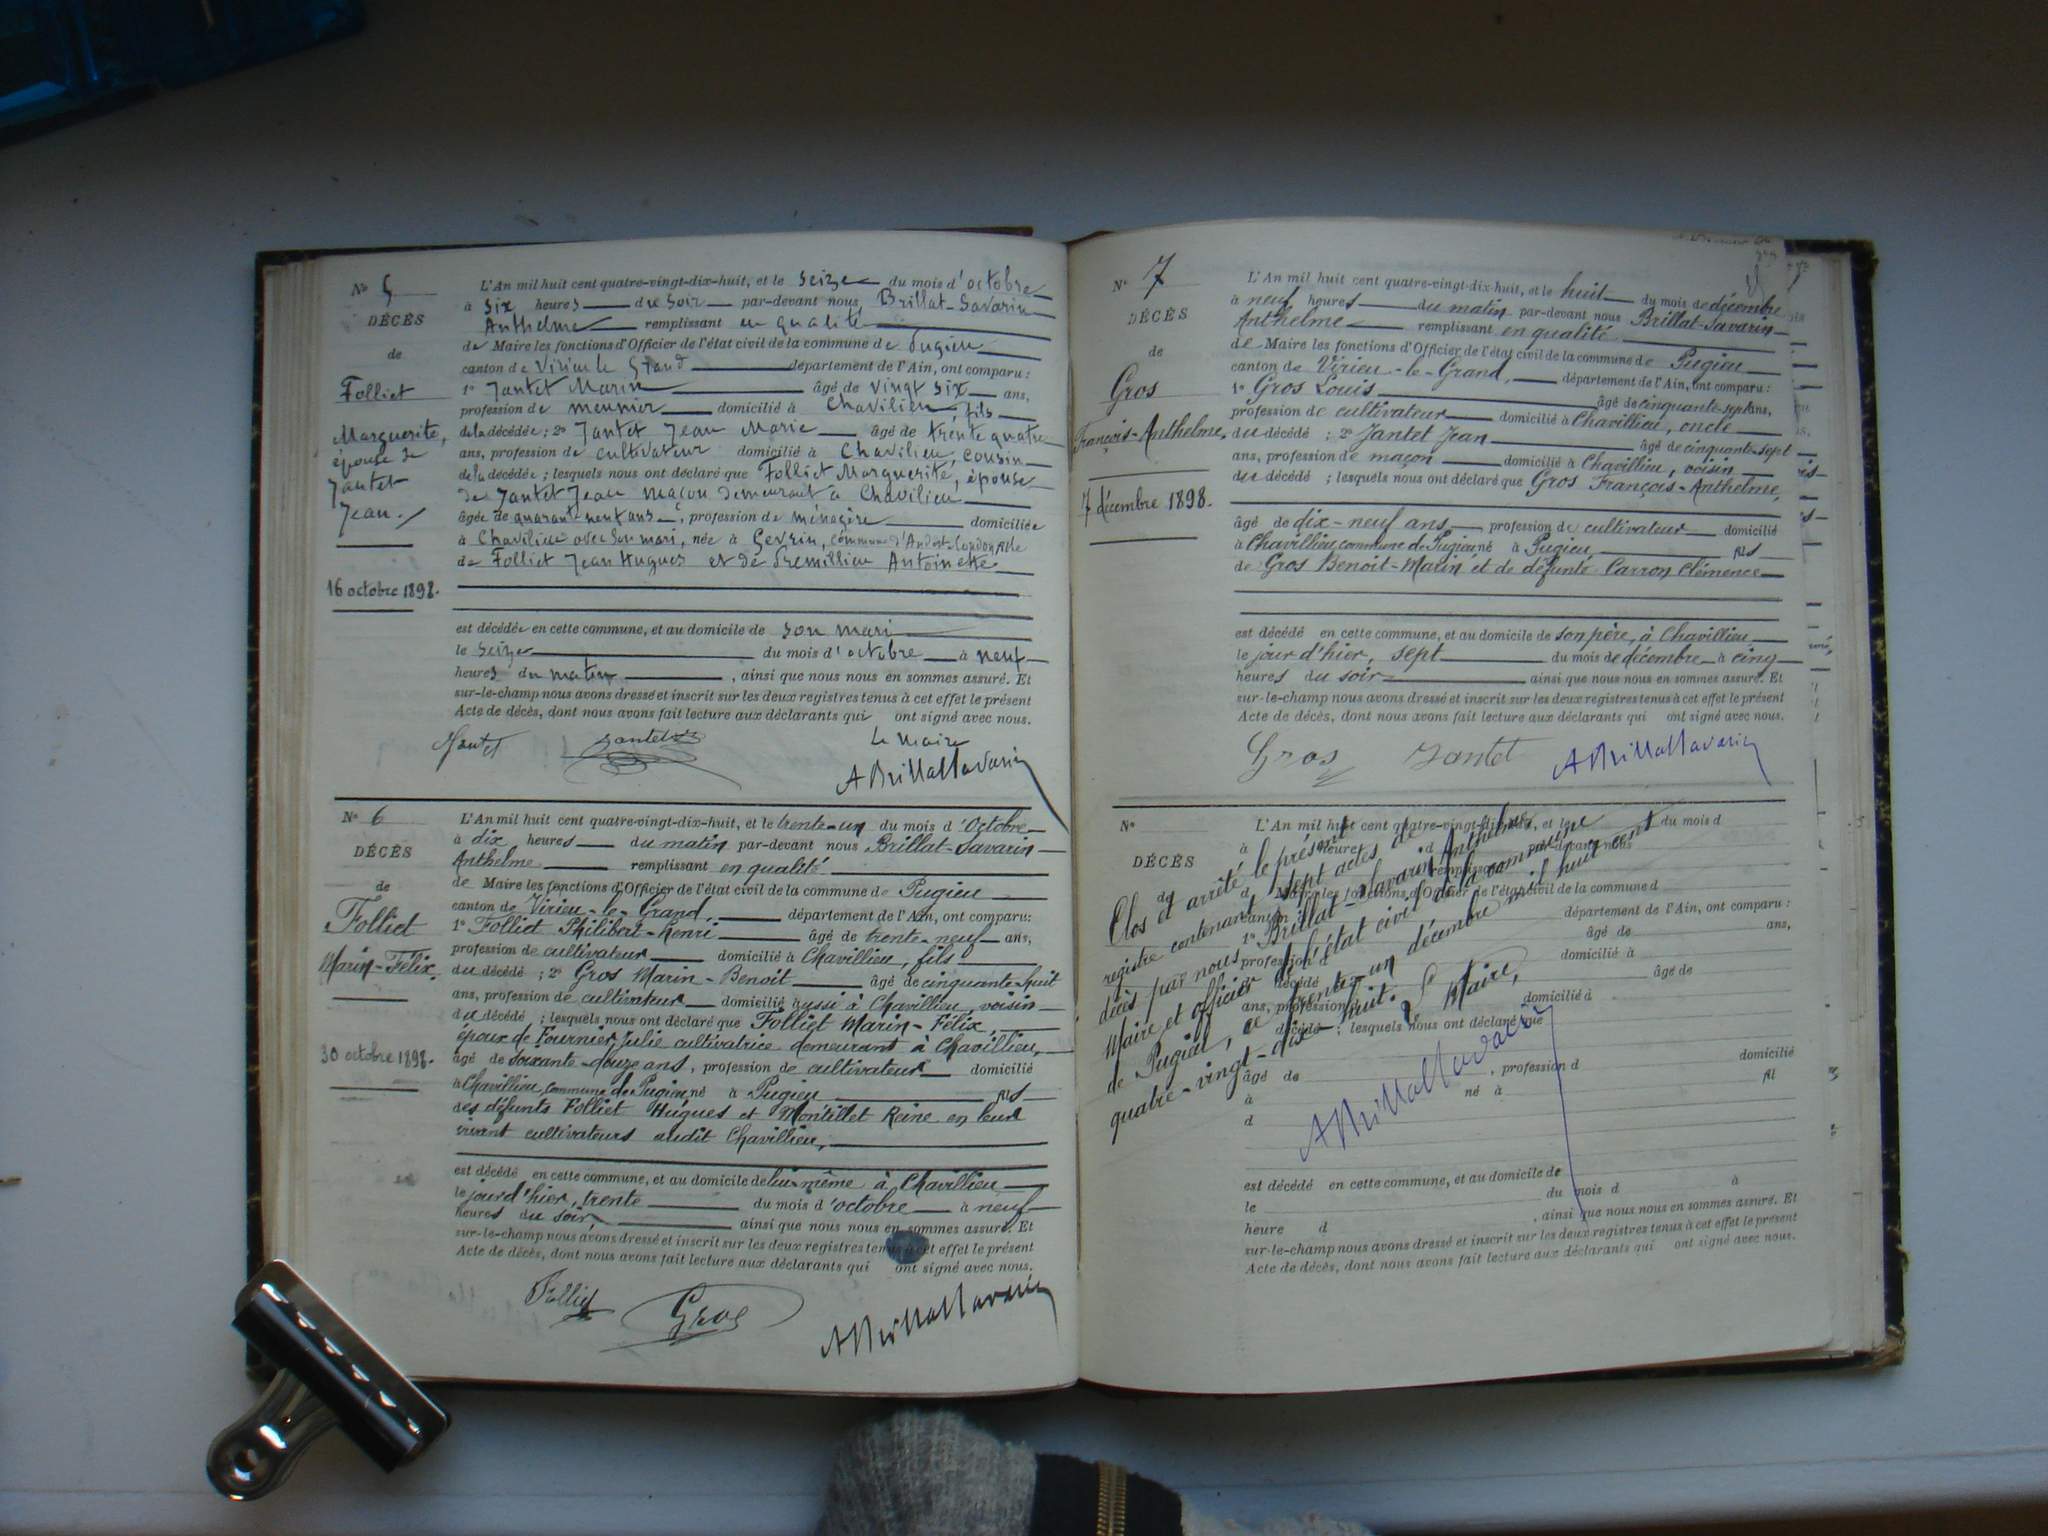 No 5
DÉCÈS
de
Folliet
Marguerite,
épouse de
Jantet
Jean./
16 octobre 1898.
L'An mil huit cent quatre-vingt-dix-huit, et le seize du mois d'octobre
à six heures du soir par-devant nous, Brillat-Savarin
Anthelme remplissant en qualité
de Maire les fonctions d'Officier de l'état civil de la commune de Pugieu
canton de Virieu le Grand département de l'Ain, ont comparu :
1º Jantet Marin âgé de vingt six ans,
profession de meunier domicilié à Chavilieu, fils
de la décédée ; 2º Jantet Jean Marie âgé de trente quatre
ans, profession de cultivateur domicilié à Chavilieu, cousin
de la décédée ; lesquels nous ont déclaré que Folliet Marguerite, épouse
de Jantet Jean maçon demeurant à Chavilieu
âgée de quarante neuf ans, profession de ménagère domiciliée
à Chavilieu avec son mari, née à Gevrin, commune d'Andert-Condon fille
de Folliet Jean Hugues et de Premillieu Antoinette
est décédée en cette commune, et au domicile de son mari
le seize du mois d'octobre à neuf
heures du matin, ainsi que nous nous en sommes assuré. Et
sur-le-champ nous avons dressé et inscrit sur les deux registres tenus à cet effet le présent
Acte de décès, dont nous avons fait lecture aux déclarants qui ont signé avec nous.
Jantet Jantet Le Maire
A Brillat Savarin
No 6
DÉCÈS
de
Folliet
Marin-Félix,
30 octobre 1898.
L'An mil huit cent quatre-vingt-dix-huit, et le trente-un du mois d'Octobre
à dix heures du matin par-devant nous Brillat-Savarin
Anthelme remplissant en qualité
de Maire les fonctions d'Officier de l'état civil de la commune de Pugieu
canton de Virieu-le-Grand, département de l'Ain, ont comparu:
1º Folliet Philibert-Henri âgé de trente-neuf ans,
profession de cultivateur domicilié à Chavillieu, fils
du décédé ; 2º Gros Marin-Benoit âgé de cinquante-huit
ans, profession de cultivateur domicilié aussi à Chavillieu, voisin
du décédé ; lesquels nous ont déclaré que Folliet Marin-Félix,
époux de Fournier Julie cultivatrice demeurant à Chavillieu,
âgé de soixante-douze ans, profession de cultivateur domicilié
à Chavillieu commune de Pugieu né à Pugieu fils
des défunts Folliet Hugues et Montillet Reine en leur
vivant cultivateurs audit Chavillieu,
est décédé en cette commune, et au domicile de lui-même à Chavillieu
le jour d'hier, trente du mois d'octobre à neuf
heures du soir, ainsi que nous nous en sommes assuré. Et
sur-le-champ nous avons dressé et inscrit sur les deux registres tenus à cet effet le présent
Acte de décès, dont nous avons fait lecture aux déclarants qui ont signé avec nous.
Folliet Gros A Brillat Savarin
No 7
DÉCÈS
de
Gros
François-Anthelme,
7 décembre 1898.
L'An mil huit cent quatre-vingt-dix-huit, et le huit du mois de décembre
à neuf heures du matin par-devant nous Brillat-Savarin
Anthelme remplissant en qualité
de Maire les fonctions d'Officier de l'état civil de la commune de Pugieu
canton de Virieu-le-Grand, département de l'Ain, ont comparu :
1º Gros Louis âgé de cinquante-sept ans,
profession de cultivateur domicilié à Chavillieu, oncle
du décédé ; 2º Jantet Jean âgé de cinquante-sept
ans, profession de maçon domicilié à Chavillieu, voisin
du décédé ; lesquels nous ont déclaré que Gros François-Anthelme,
âgé de dix-neuf ans, profession de cultivateur domicilié
à Chavillieu commune de Pugieu né à Pugieu, fils
de Gros Benoit-Marin et de défunte Carron Clémence
est décédé en cette commune, et au domicile de son père, à Chavillieu
le jour d'hier, sept du mois de décembre à cinq
heures du soir ainsi que nous nous en sommes assuré. Et
sur-le-champ nous avons dressé et inscrit sur les deux registres tenus à cet effet le présent
Acte de décès, dont nous avons fait lecture aux déclarants qui ont signé avec nous.
Gros Jantet A Brillat Savarin
No
DÉCÈS
de
L'An mil huit cent quatre-vingt-dix-huit, et le du mois d
à heure d par-devant nous
remplissant
d Maire les fonctions d'Officier de l'état civil de la commune d
canton d département de l'Ain, ont comparu :
1º âgé de ans,
profession d domicilié à
décédé âgé de
ans, profession d domicilié à
décédé ; lesquels nous ont déclaré que
âgé de , profession d domicilié
à né à fil
d
est décédé en cette commune, et au domicile de
le du mois d à
heure d , ainsi que nous nous en sommes assuré. Et
sur-le-champ nous avons dressé et inscrit sur les deux registres tenus à cet effet le présent
Acte de décès, dont nous avons fait lecture aux déclarants qui ont signé avec nous.
Clos et arrêté le présent
registre contenant sept actes de
décès par nous Brillat-Savarin Anthelme
Maire et officier de l'état civil de la commune
de Pugieu, ce trente-un décembre mil huit cent
quatre-vingt-dix-huit. Le Maire,
A Brillat Savarin